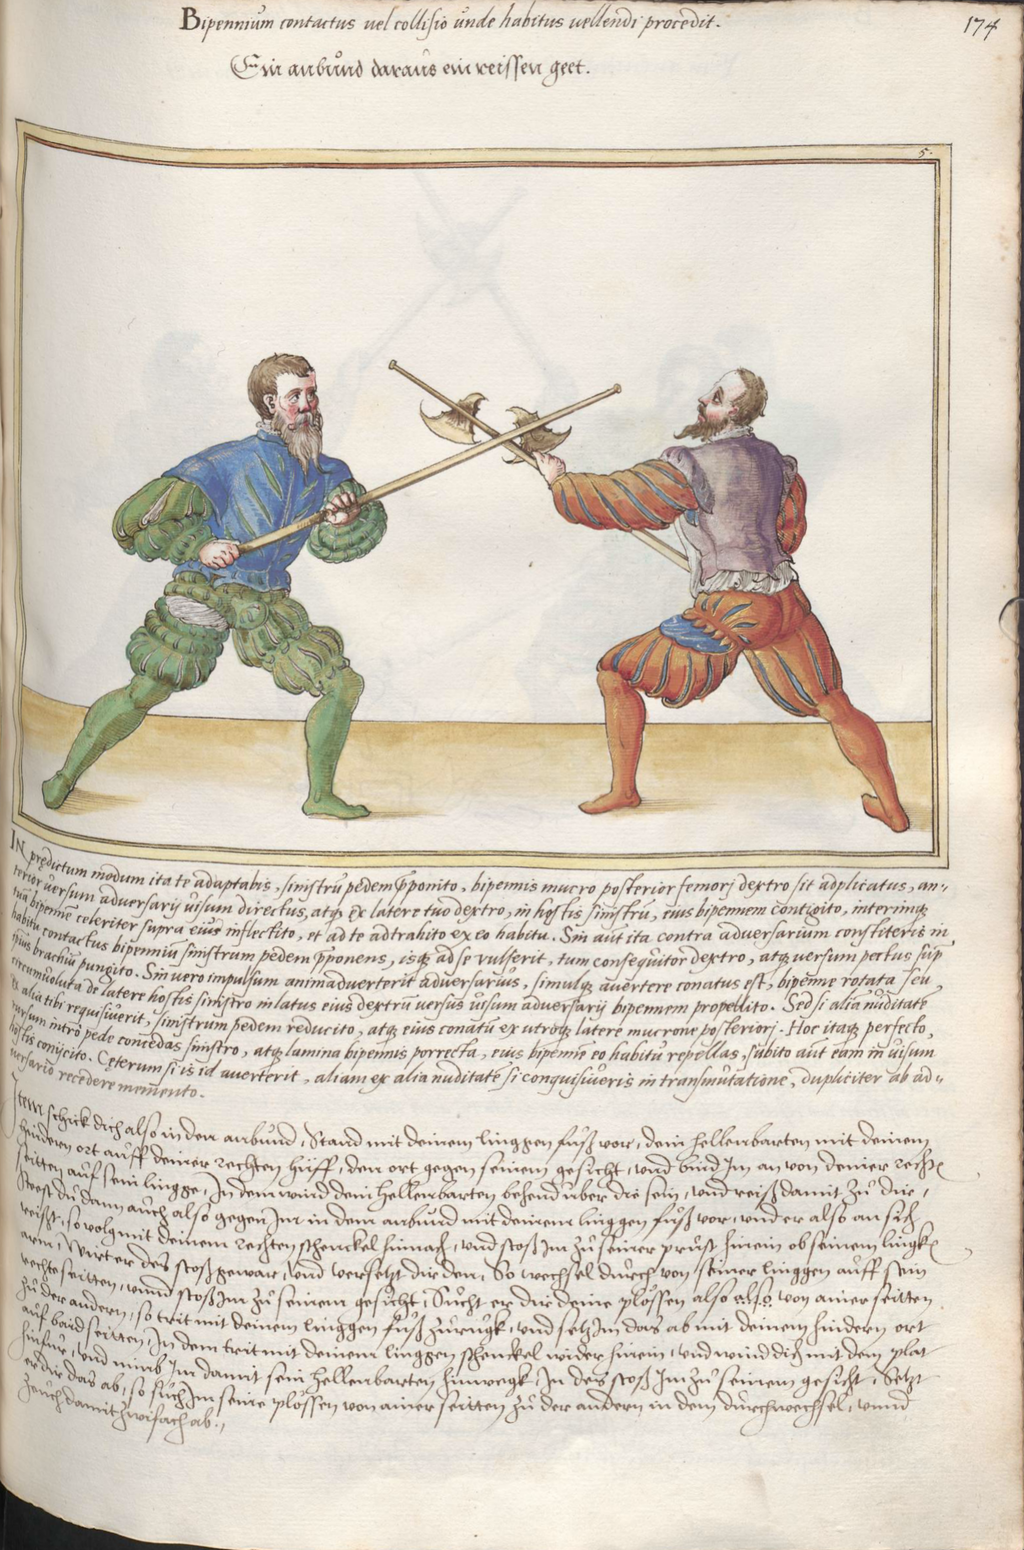 Bipennium contactus vel collisio unde habitus vellendi procedit.
174
Ein anbund daraus ein reissen geet.
5.
IN prędictum modum ita te aduptabis, sinistrũ pedem p̱ponito, bipennis mucro posterior femori dextro sit adplicatus, an-
terior versum adversarij visum directus, atq; ex latere tuo dextro, in hostis sinistrũ, eius bipennem contigito, interimq;
tuã bipennẽ celeriter supra eius inflectito, et ad te adtrahito ex eo habitu. Sin aut ita contra adversarium constiteris in
habitu contactus bipennium sinistrum pedem p̱ponens, isq; ad se vulserit, tum consequitor dextro, atq; versum pectus sup̱
ipius brachiũ pungito. Sin vero impulsum animadverterit adversarius, simulq; avertere conatus est, bipenne rotata seu
circumvoluta de latere hostis sinistro in latus eius dextrũ versus visum adversarij bipennem propellito. Sed si alia nuditate
ex alia tibi requisiverit, sinistrum pedem reducito, atq; eius conatũ ex utroq; latere mucrone posteriori. Hoc itaq; perfecto,
rursum intro pede concedas sinistro, atq; lamina bipennis porrecta, eius bipennẽ eo habitu repellas, subito aut eam in visum
hostis conijcito. Cęterum si is id averterit, aliam ex alia nuditatẽ si conquisiveris in transmutatione, dupliciter ab ad-
versario recedere memento.
Item schick dich also in den anbund, Stand mit deinem linggen fuß vor, dein hellenbarten mit deinem
hindern ort auff deiner rechten hüff, den ort gegen seinem gesicht, vnd bind Im an von deiner recht
seitten auf sein lingge, In dem wind dein hellenbarten behend uber die sein, vnd reiß damit zu dir,
Steest du dann auch also gegen Im in dem anbund mit deinem linggen fuß vor, vnd er also an sich
reißt, so volg mit deinem rechten schenckel hinnach, vnd stoß Im zu seiner prust hinein ob seinem lingk
arm, Wirt er des stoß gewar, vnd versetzt dir den, So wechsel durch von seiner linggen auff sein
rechte seitten, vnnd stoß Im zu seinem gesicht, Sücht er dir deine plössen also von ainer seitten
zu der andern, so trit mit deinem linggen fuß zurugk, vnd setz Im das ab mit deinem hindern ort
auf baid seitten, In dem trit mit deinem linggen schenckel wider hinein, vnd wind dich mit dem plat
hinfur, vnd nimb Im damit sein hellenbarten hinwegk, In des stoß Im zu seinem gesicht, Setzt
er dir das ab, so süch Im seine plössen von ainer seitten zu der andern in dem durchwechsel, vnnd
zeuch damit zwifach ab.